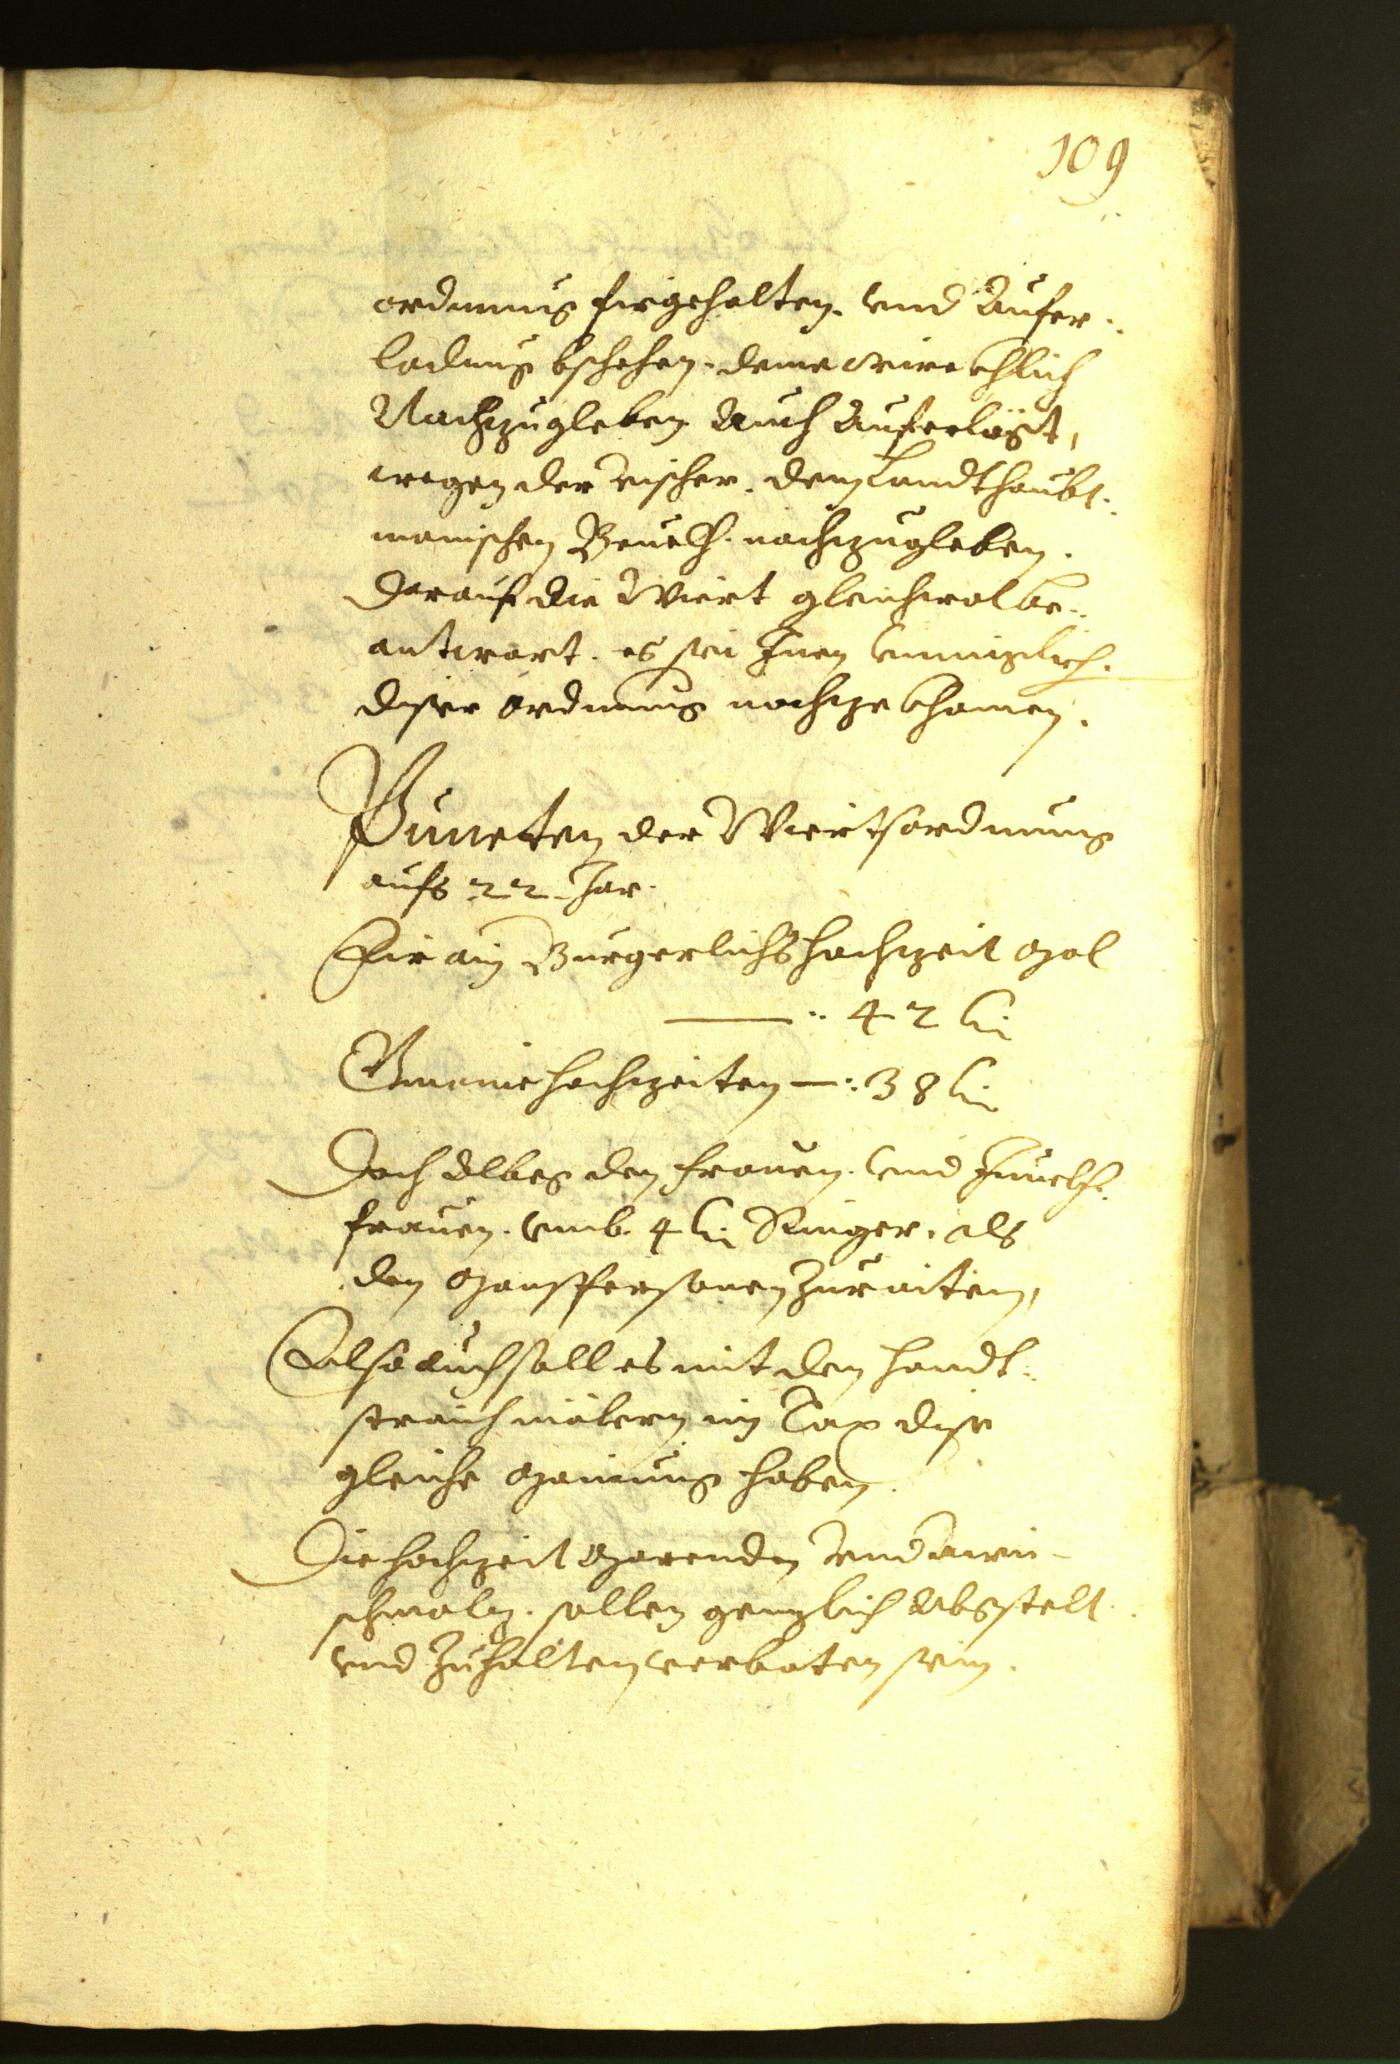 109
ordnung firgehalten. vnd Aufer¬
ladung bschehen. deme wirckhlich
Nachzugleben Auch Auferlögt,
wegen der vischer. dem Landthaubt¬
manischen Beuelh. nachzugleben.
Darauf die Wiert gleichwol be¬
antwort. es sei Inen vnmiglich.
diser ordnung nachzekhomen.
Puncten der Wiertsordnung
aufs 22 Jar.
Fir ain Burgerlichs hochzeit mal
42 kr
Gmeine hochzeiten 38 kr
Doch Albeg den frauen. vnd Junckh¬
frauen. vmb. 4 kr Ringer. als
den manspersonen Zuraiten,
Also auch soll es mit den handt¬
straich mälern im Tax dise
gleiche mainung haben.
Die hochzeit marenden vnd
schmalz. sollen genzlich Abgstelt
vnd Zuhalten verboten sein.